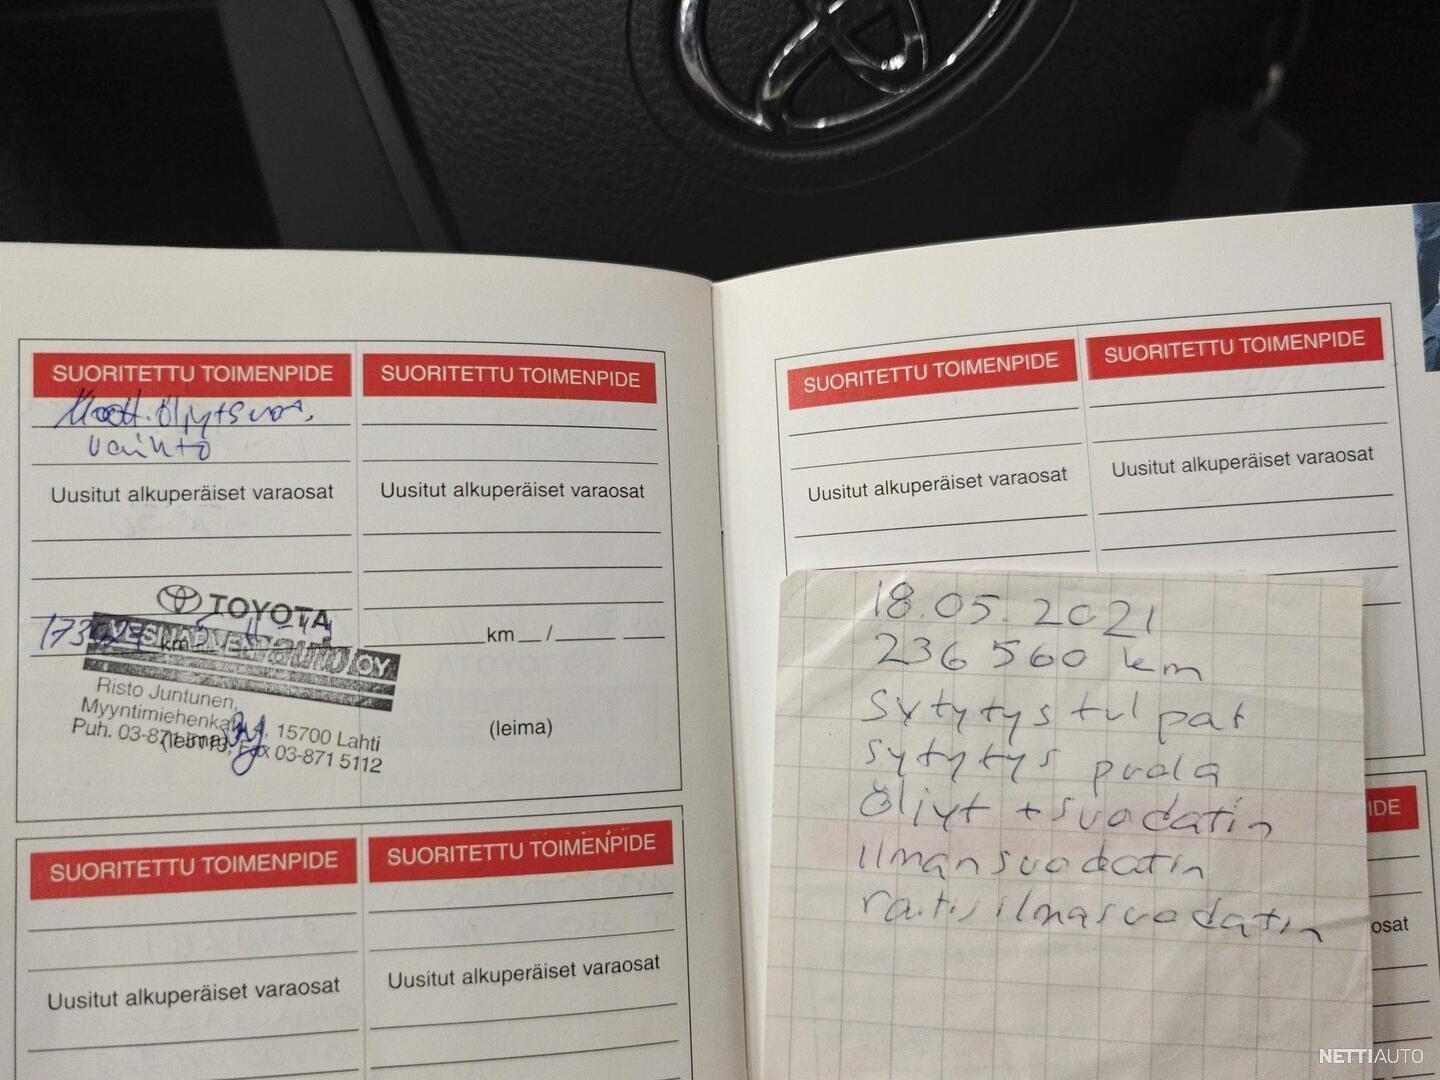 SUORITETTU TOIMENPIDE
Moott.öljytsuod.
vaihto
Uusitut alkuperäiset varaosat
TOYOTA
VESIJÄRVEN AUTO OY
km
Risto Juntunen,
Myyntimiehenkatu 4, 15700 Lahti
Puh. 03-871 5113, Fax 03-871 5112
(leima)
SUORITETTU TOIMENPIDE
Uusitut alkuperäiset varaosat
km /
(leima)
SUORITETTU TOIMENPIDE
Uusitut alkuperäiset varaosat
SUORITETTU TOIMENPIDE
Uusitut alkuperäiset varaosat
SUORITETTU TOIMENPIDE
Uusitut alkuperäiset varaosat
SUORITETTU TOIMENPIDE
Uusitut alkuperäiset varaosat
18.05.2021
236 560 km
sytytystulpat
sytytys puola
Öljyt + suodatin
ilmansuodatin
raitisilmasuodatin
IDE
osat
NETTIAUTO